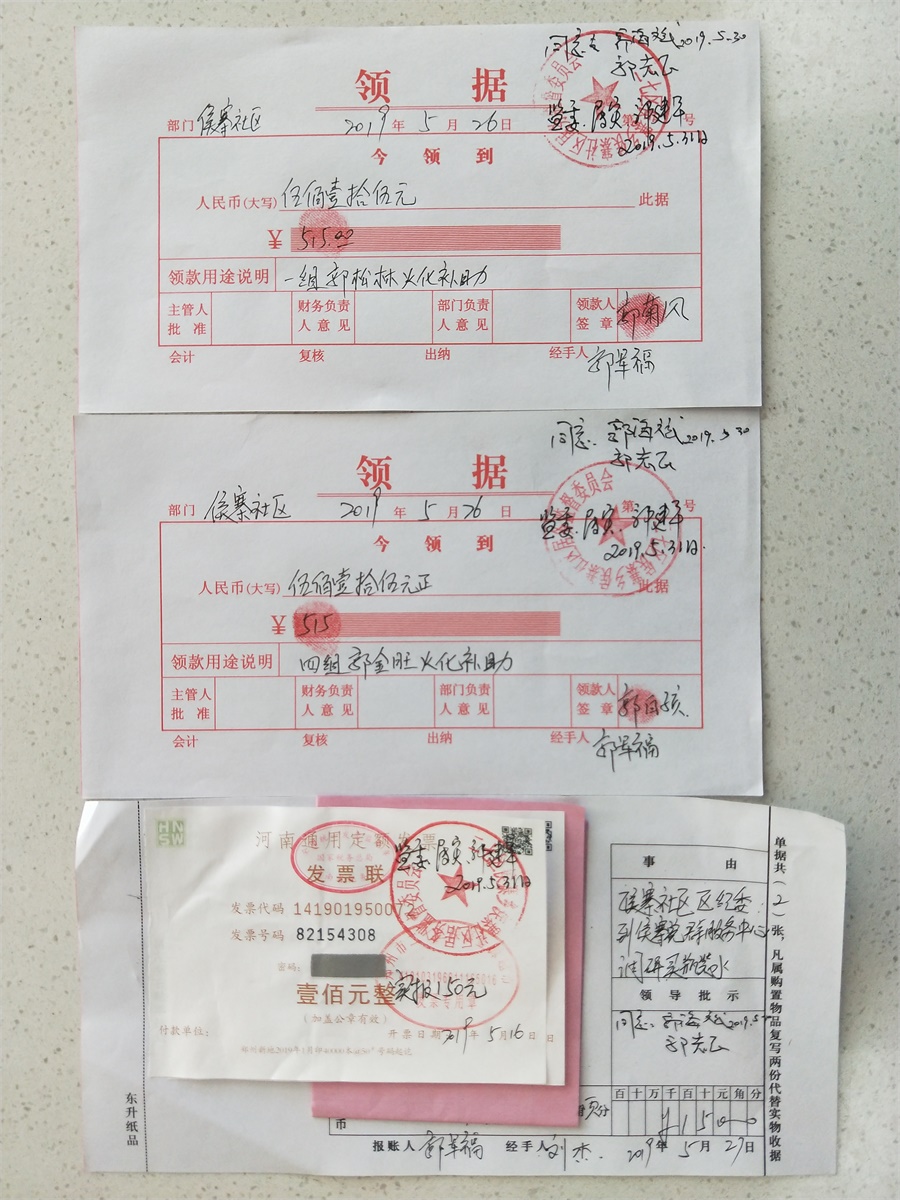 同意 郭海斌 2019.5.30
郭志正
领 据
监委 属实
2019.5.31日
部门 侯寨社区 2019年5月26日 第 号
今 领 到
人民币(大写) 伍佰壹拾伍元 此据
¥ 515.00
领款用途说明 一组郭松林火化补助
主管人批 准 财务负责人 意 见 部门负责人 意 见 领款人签 章
会计 复核 出纳 经手人 郭军福
同意. 郭海斌 2019.5.30
郭志正
领 据
监委. 属实
2019.5.31日.
部门 侯寨社区 2019年5月26日 第 号
今 领 到
人民币(大写) 伍佰壹拾伍元正 此据
¥ 515
领款用途说明 四组郭金旺火化补助
主管人批 准 财务负责人 意 见 部门负责人 意 见 领款人签 章
会计 复核 出纳 经手人 郭军福
河南通用定额发票
发票联
监委. 属实
2019.5.31日
发票代码
发票号码 82154308
密码:
壹佰元整 实报150元
(加盖公章有效)
付款单位: 开票日期 2019年5月16日
事 由
侯寨社区区纪委
到侯寨党群服务中心
调研买瓶装水
领 导 批 示
同意. 郭海斌
郭志正
百 十 万 千 百 十 元 角 分
币
报账人 郭军福 经手人 刘杰. 2019年5月27日
单据共(2)张,凡属购置物品复写两份代替实物收据
东升纸品